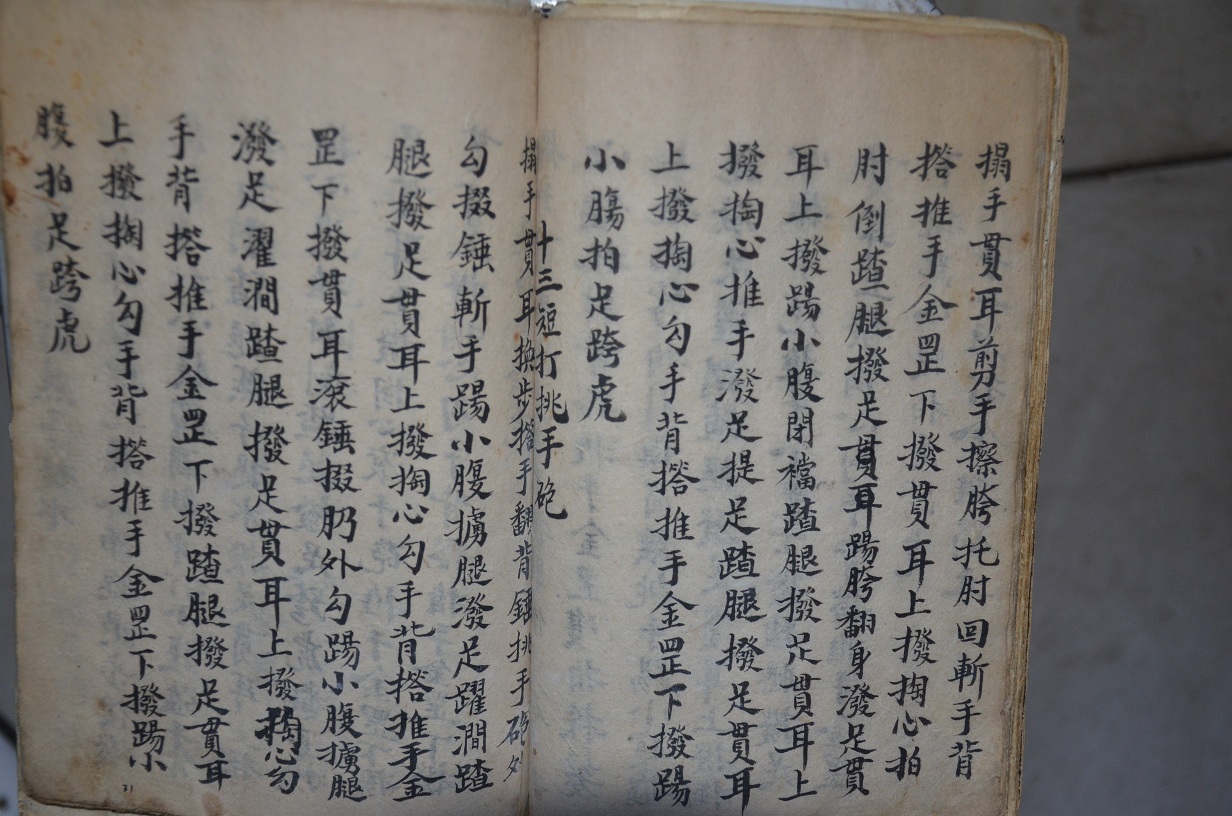 搨手貫耳剪手擦胯托肘回斬手背
搭推手金罡下撥貫耳上撥掏心拍
肘倒蹅腿撥足貫耳踢胯翻身潑足貫
耳上撥踢小腹閉襠蹅腿撥足貫耳上
撥掏心推手潑足提足蹅腿撥足貫耳
上撥掏心勾手背搭推手金罡下撥踢
小膓拍足跨虎
十三短打挑手砲
搨手貫耳換步搭手翻背錘挑手砲外
勾掇錘斬手踢小腹擄腿潑足躍澗蹅
腿撥足貫耳上撥掏心勾手背搭推手金
罡下撥貫耳滾錘掇肕外勾踢小腹擄腿
潑足濯澗蹅腿撥足貫耳上撥掏心勾
手背搭推手金罡下撥蹅腿撥足貫耳
上撥掏心勾手背搭推手金罡下撥踢小
腹拍足跨虎
31